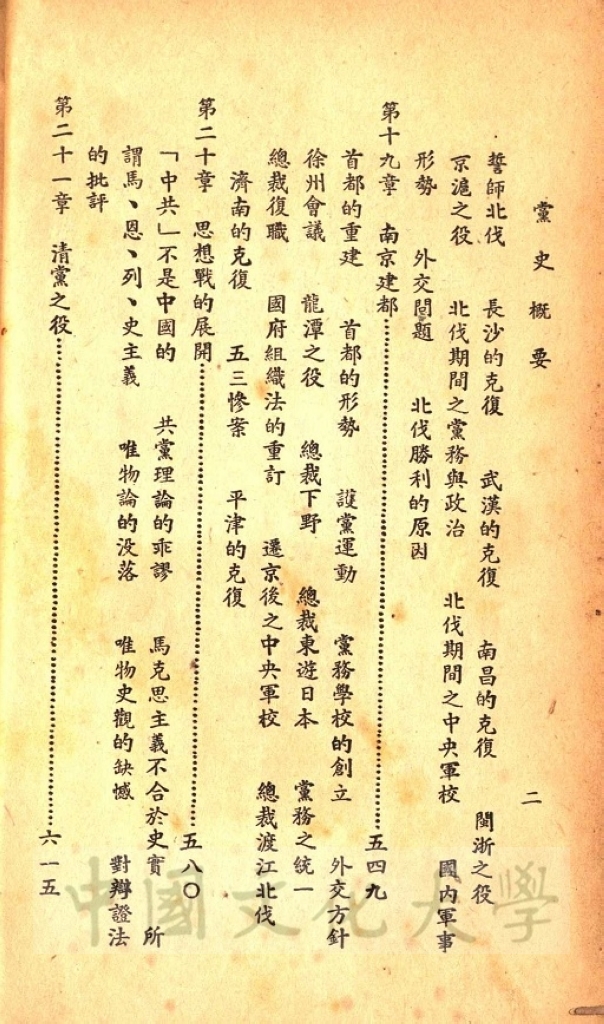 黨史概要　二
誓師北伐　長沙的克復　武漢的克復　南昌的克復　閩浙之役
京滬之役　北伐期間之黨務與政治　北伐期間之中央軍校　國內軍事
形勢　外交問題　北伐勝利的原因
第十九章　南京建都……五四九
首都的重建　首都的形勢　護黨運動　黨務學校的創立　外交方針
徐州會議　龍潭之役　總裁下野　總裁東遊日本　黨務之統一
總裁復職　國府組織法的重訂　遷京後之中央軍校　總裁渡江北伐
濟南的克復　五三慘案　平津的克復
第二十章　思想戰的展開……五八〇
「中共」不是中國的　共黨理論的乖謬　馬克思主義不合於史實　所
謂馬、恩、列、史主義　唯物論的没落　唯物史觀的缺憾　對辯證法
的批評
第二十一章　清黨之役……六一五
中國文化大學